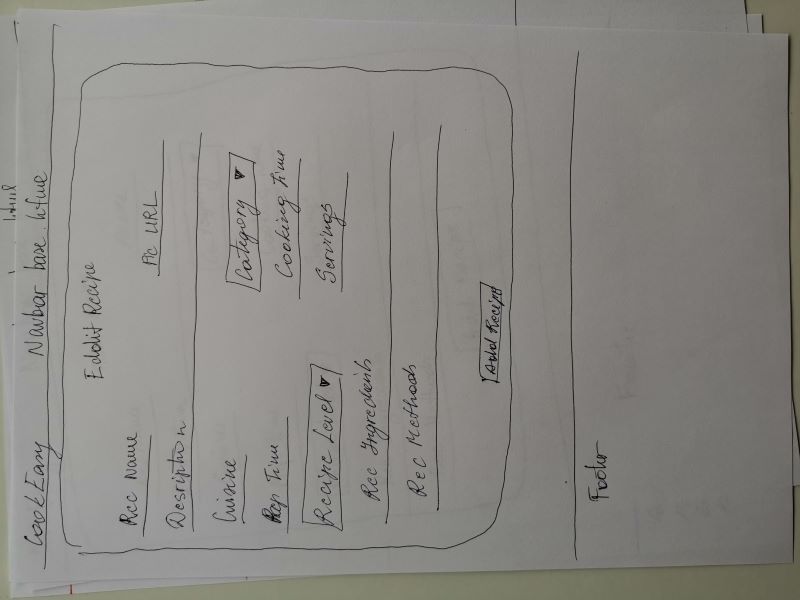 CookEasy Navbar base.html
Eddit Recipe
Rec Name
Pic URL
Desription
Cuisine
Category ▼
Prep Time
Cooking Time
Recipe Level ▼
Servings
Rec Ingredients
Rec Methods
Add Recipe
Footer